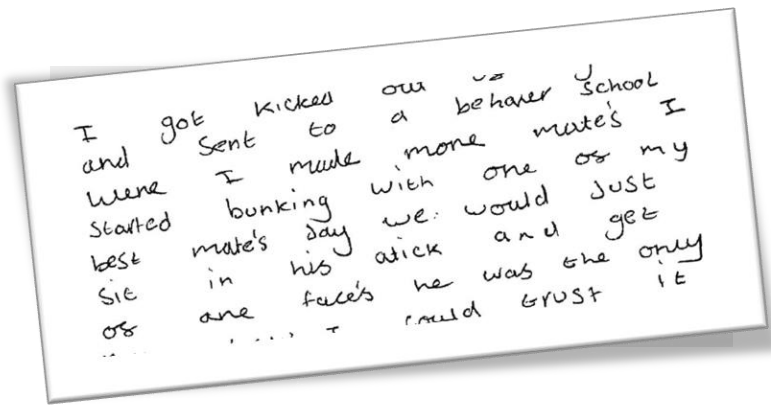 I got kicked
and sent to a behaver school
were I made more mate's I
started bunking with one of my
best mate's Jay we would just
sit in his atick and get
of are face's he was the only
I could trust it